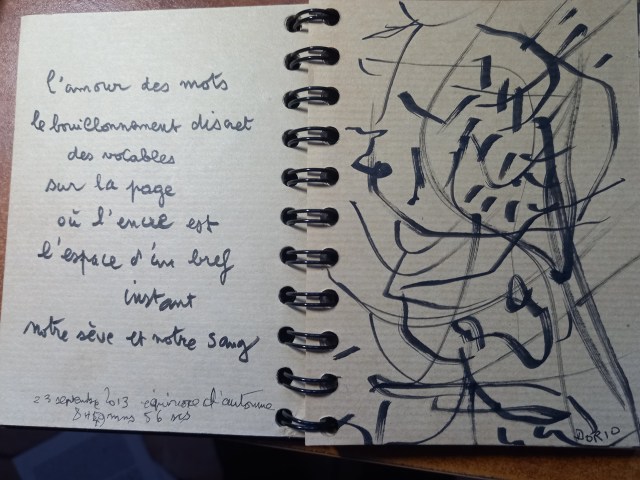 l'amour des mots
le bouillonnement discret
des vocables
sur la page
où l'encre est
l'espace d'un bref
instant
notre sève et notre sang
23 septembre 2013 équinoxe d'automne
56 scs
DORIO